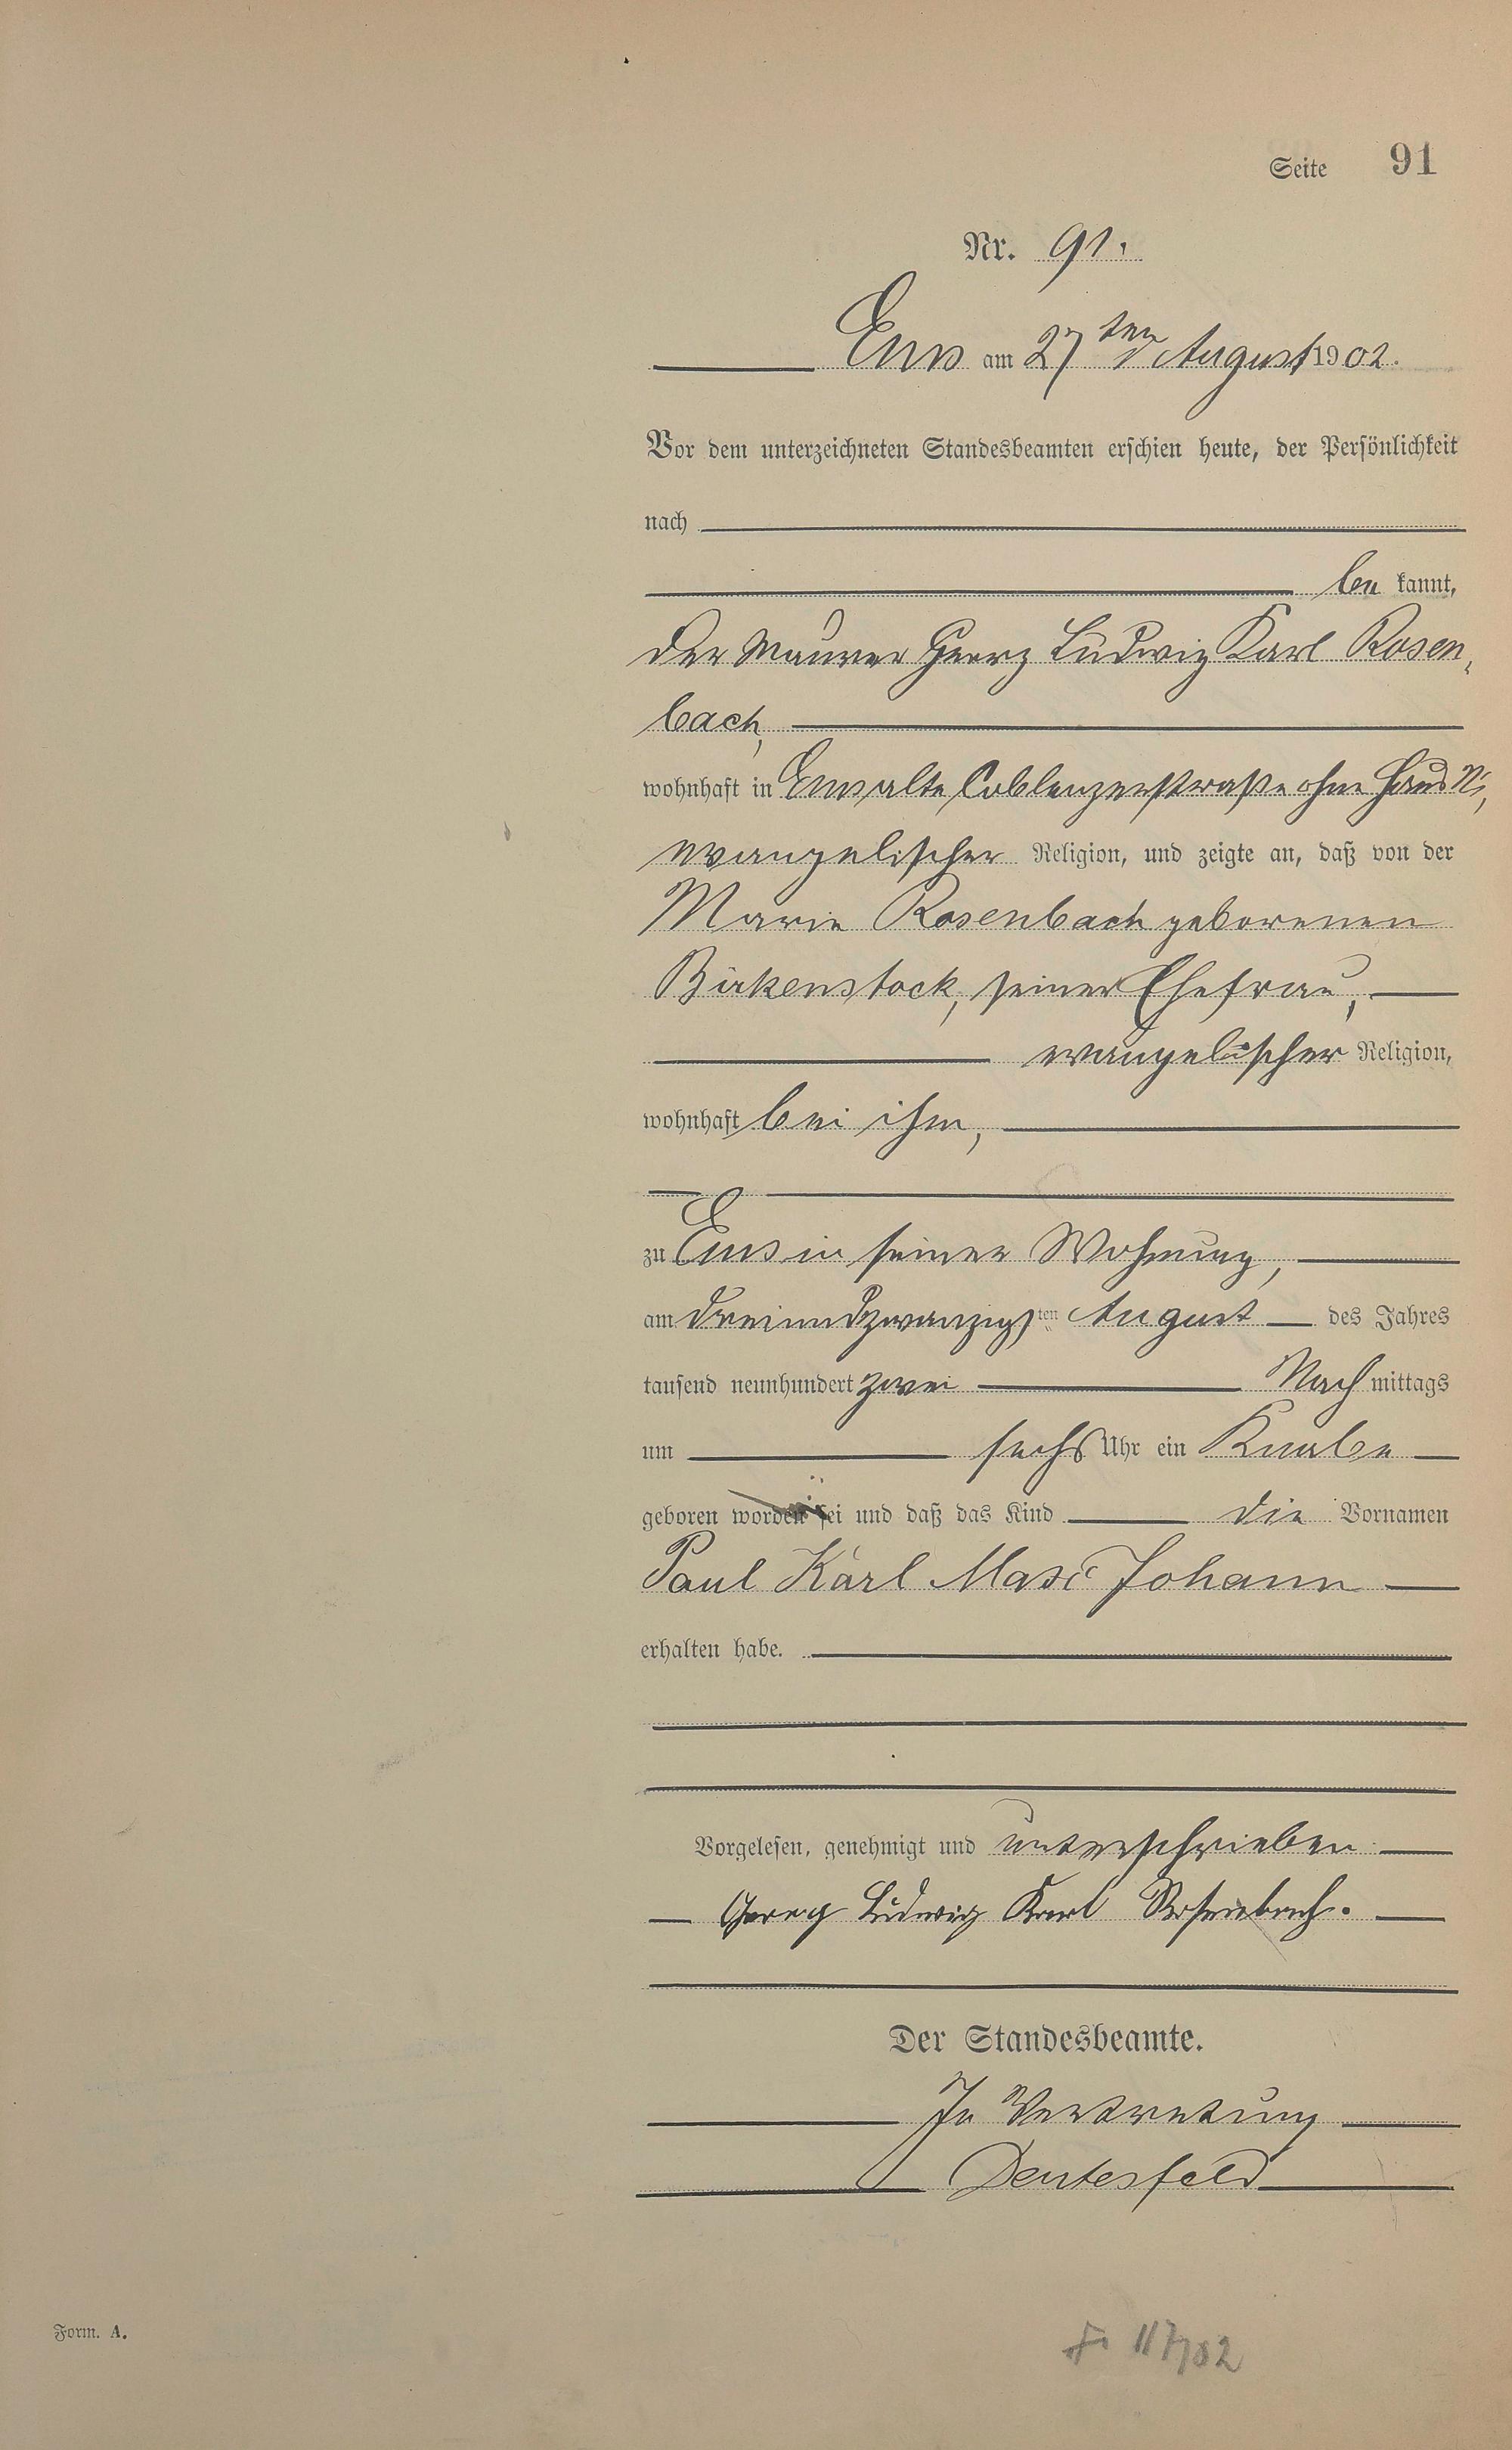 Seite 91
Nr. 91.
Ems am 27ten August 1902.
Vor dem unterzeichneten Standesbeamten erschien heute, der Persönlichkeit
nach
be kannt,
der Maurer Georg Ludwig Karl Rosen,
bach,
wohnhaft in Ems alte Coblenzerstraße ohne Haus Nr,
evangelischer Religion, und zeigte an, daß von der
Marie Rosenbach geborenen
Birkenstock, seiner Ehefrau,
evangelischer Religion,
wohnhaft bei ihm,
zu Ems in seiner Wohnung,
am dreiundzwanzigsten August des Jahres
tausend neunhundert zwei Nach mittags
um sechs Uhr ein Knabe
geboren worden sei und daß das Kind die Vornamen
Paul Karl Max Johann
erhalten habe.
Vorgelesen, genehmigt und unterschrieben
Georg Ludwig Karl Rosenbach.
Der Standesbeamte.
In Vertretung
Deutesfeld
Form. A. 117/02